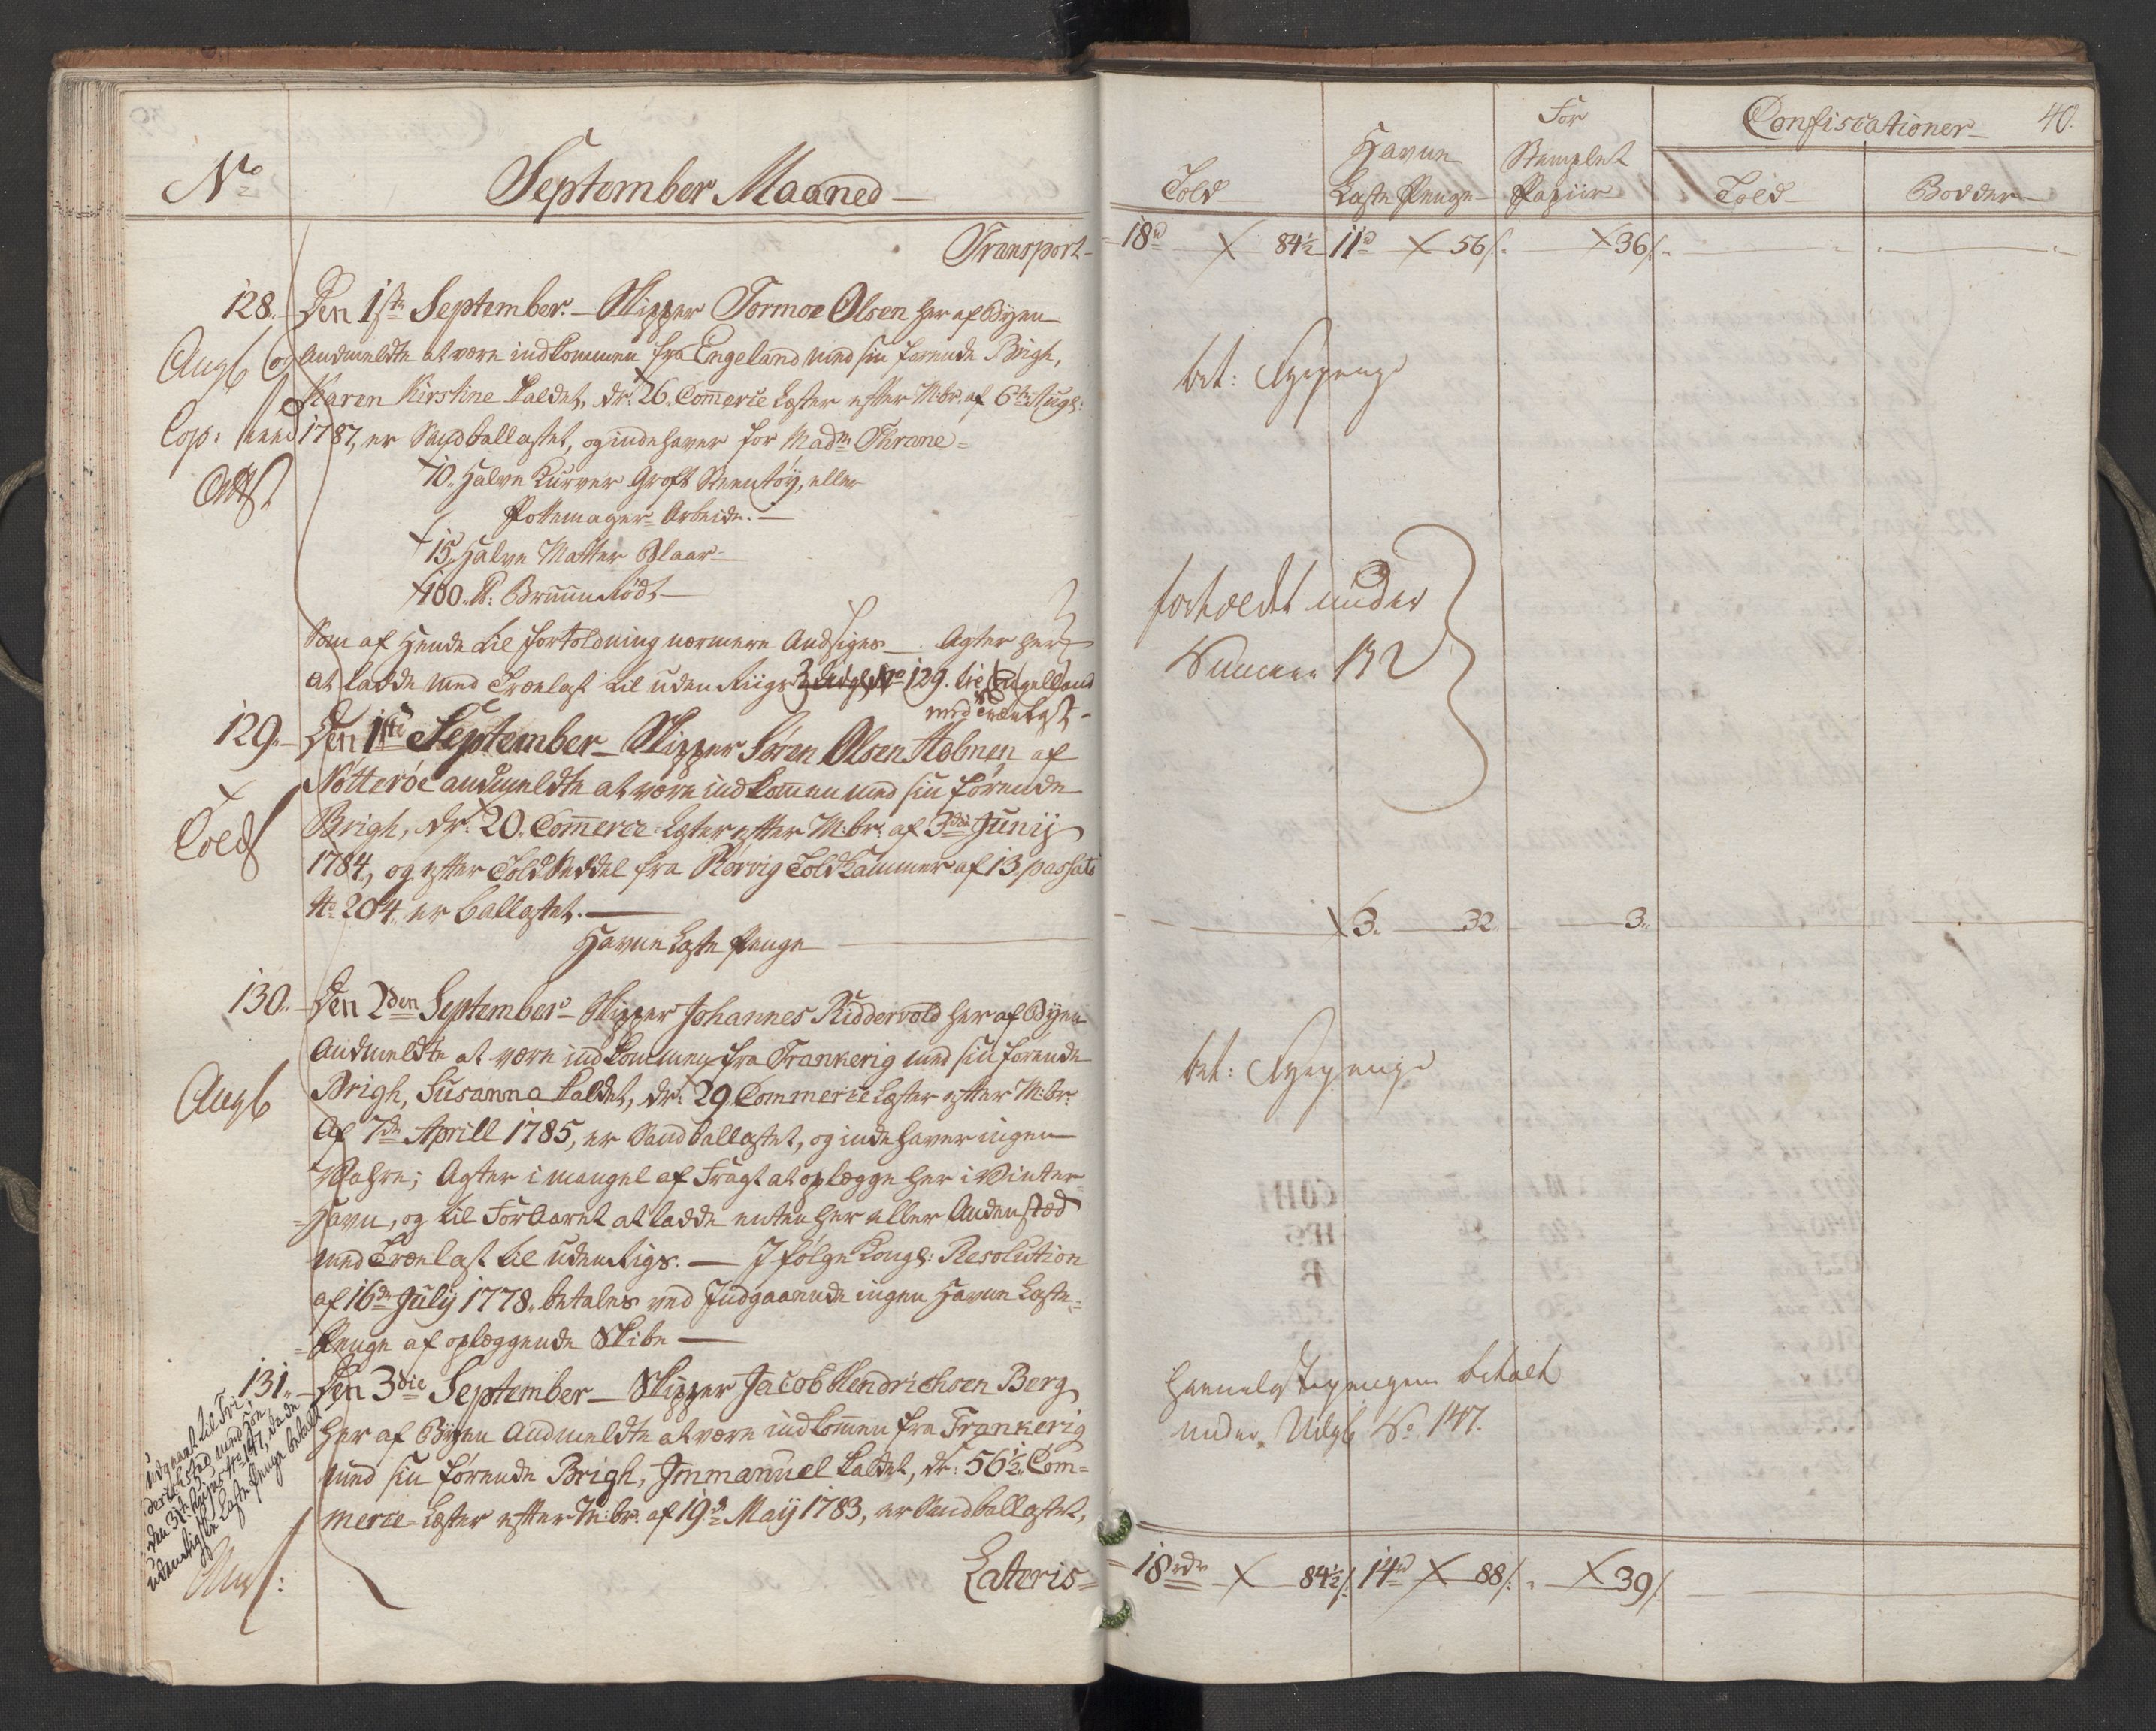 No
September Maaned
Transport
128. Den 1ste September. Skipper Tormoe Olsen her af Byen
Andmeldte at være indkommen fra Engeland med sin førende Brigh,
Karen Kirstine kaldet, dr: 26 Commerce Læster efter M:br: af 6te Aug:
1787, er Sandballastet, og indehaver for Madm Thrane
10 Halve Kurver Groft Steentøy, eller
Pottemager Arbeide.
15 Halve Matter Blaar
100 Brunnrødt
Som af Hende til Fortoldning nærmere Andsiges. Agter her
at ladde med Trælast til uden Riigs No 129. til Engelland
med Trælast
129. Den 1ste September Skipper Søren Olsen Holmen af
Nøtterøe andmeldte at være indkommen med sin førende
Told
Brigh, dr: 20 Commerce Læster efter M:br: af 3die Junij
1784, og efter Told Seddel fra Rørvig Toldkammer af 13 passato
No 204, er ballastet.
Havne Laste Penge
130. Den 2den September Skipper Johannes Riddervold her af Byen
Andmeldte at være indkommen fra Frankerig med sin førende
Brigh, Susanna kaldet, dr: 29 Commerce Læster efter M:br:
Af 7de Aprill 1785, er Sandballastet, og indehaver ingen
Wahre; Agter i mangel af Fragt at oplægge her i Winter
Havn, og til Foraaret at ladde enten her eller Andenstæd
med Trælast til udenrigs. I følge Kongl: Resolution
af 16de July 1778 betales ved Indgaaende ingen Havne Laste
Penge af oplæggende Skibe
131. Den 3die September Skipper Jacob Hendrichsen Berg
her af Byen Andmeldte at være indkommen fra Frankerig
med sin førende Brigh, Immanuel kaldet, dr: 56½ Com-
merce Læster efter M:br: af 19de May 1783, er Sandballastet,
Udgaaet til Fri
derichstad med
den 3de No 147, da de
udenrigske Laste Penge betalt
Lateris
40.
Told
Havne
Laste Penge
For
Stemplet
Papiir
Confiscationer
Told
Bødder
18 84½ 11 56 36
bet:
fortoldt under
Nummer 132
3. 32 3.
bet:
under Udg No 147.
18rdr 84½ 14 88 39